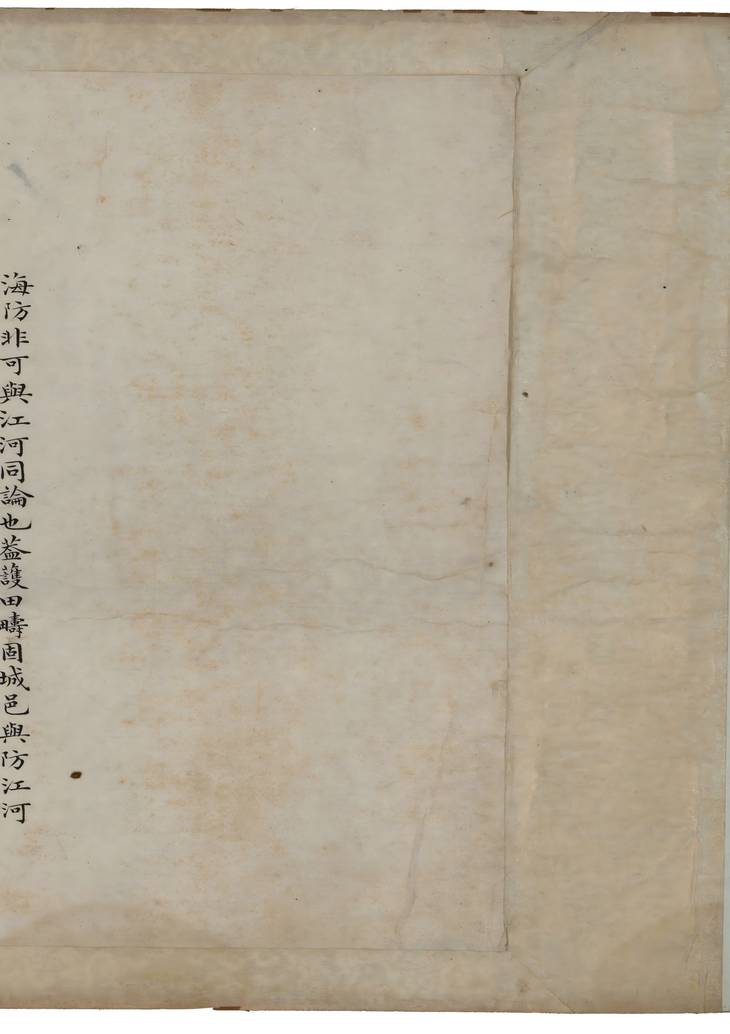 海防非可與江河同論也葢護田疇固城邑與防江河